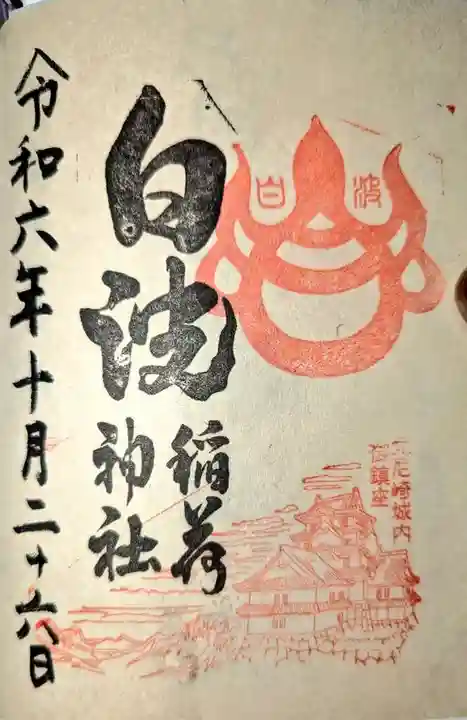 白波
白波
稲荷
神社
尼崎城内
御鎮座
令和六年十月二十六日